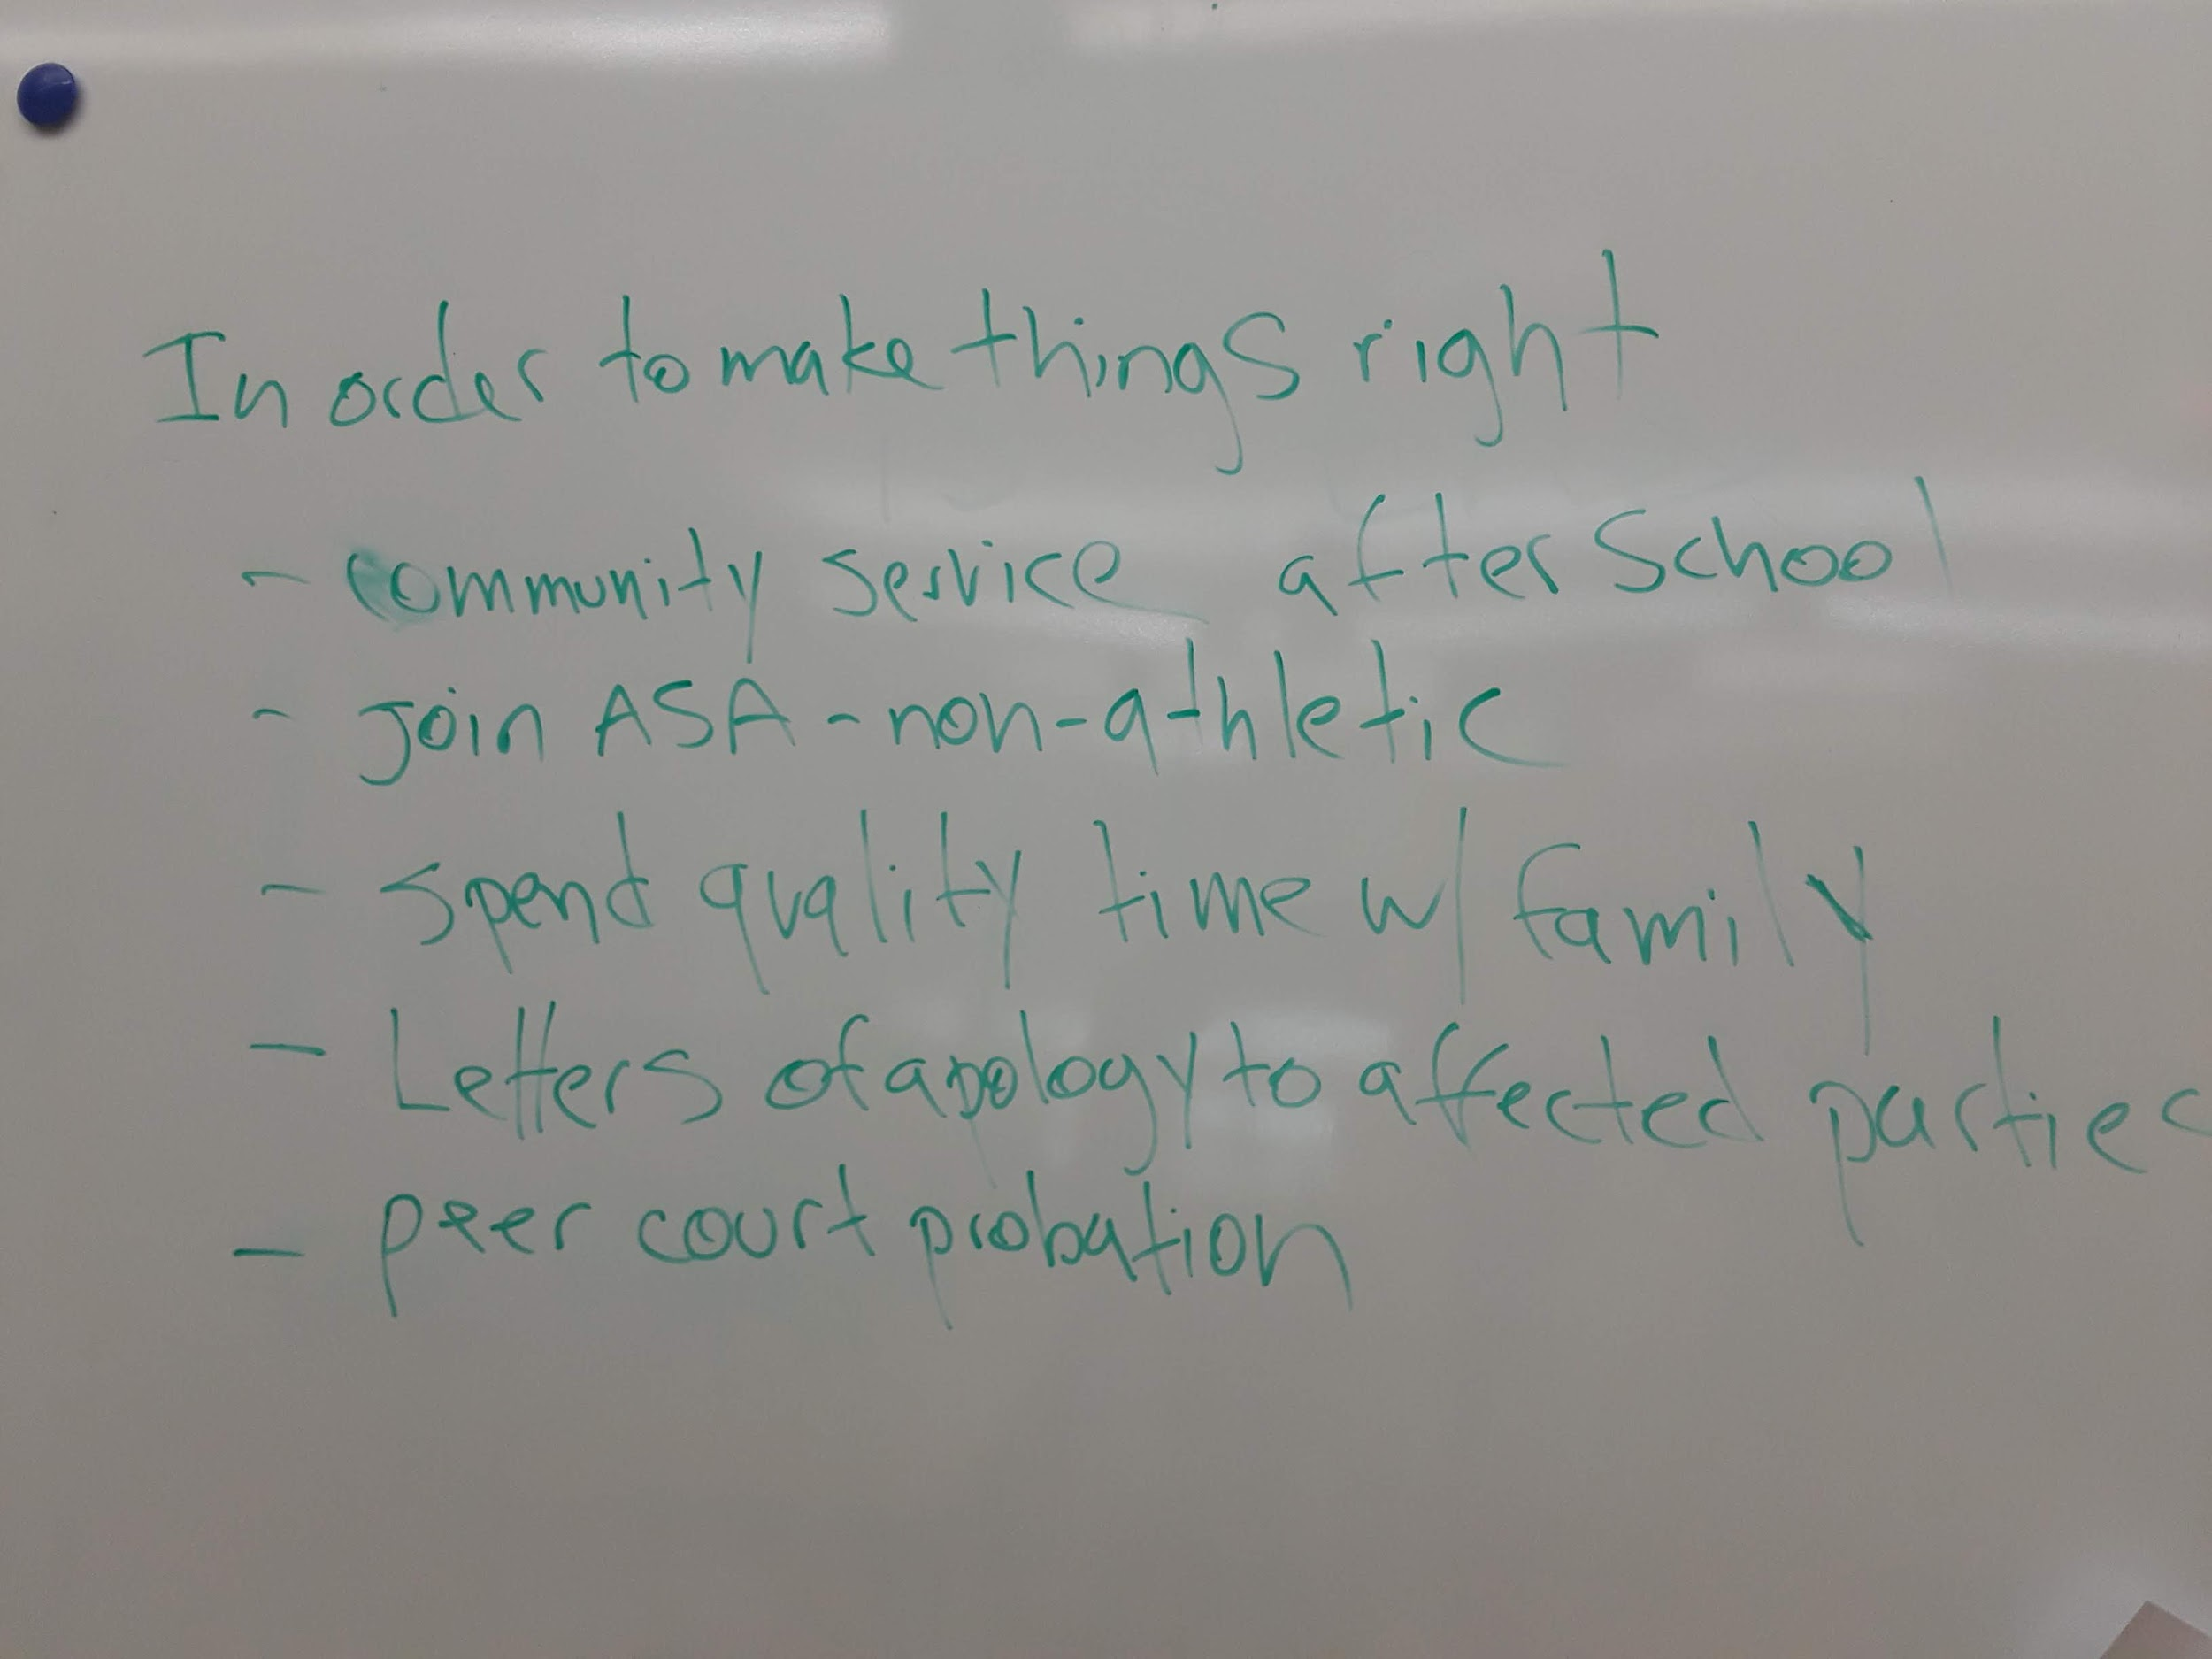 In order to make things right
- community service after School
- Join ASA - non-athletic
- spend quality time w/ family
- Letters of apology to affected parties
- peer court probation